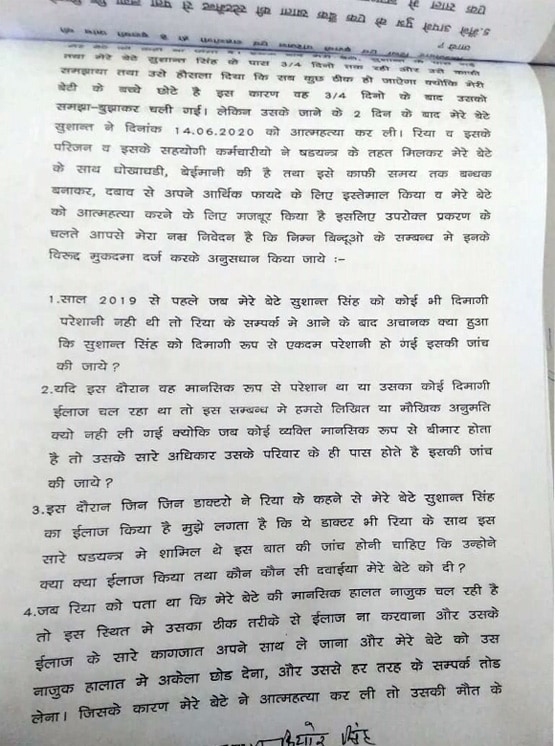 तथा मेरे बेटे सुशान्त सिंह के पास 3/4 दिनो तक रही और उसे काफी
समझाया तथा उसे हौसला दिया कि सब कुछ ठीक हो जाऐगा क्योकि मेरी
बेटी के बच्चे छोटे है इस कारण वह 3/4 दिनो के बाद उसको
समझा-बुझाकर चली गई। लेकिन उसके जाने के 2 दिन के बाद मेरे बेटे
सुशान्त ने दिनांक 14.06.2020 को आत्महत्या कर ली। रिया व इसके
परिजन व इसके सहयोगी कर्मचारीयो ने षडयन्त्र के तहत मिलकर मेरे बेटे
के साथ धोखाधडी, बेईमानी की है तथा इसे काफी समय तक बन्धक
बनाकर, दबाव से अपने आर्थिक फायदे के लिए इस्तेमाल किया व मेरे बेटे
को आत्महत्या करने के लिए मजबूर किया है इसलिए उपरोक्त प्रकरण के
चलते आपसे मेरा नम्र निवेदन है कि निम्न बिन्दूओ के सम्बन्ध मे इनके
विरूद्द मुकदमा दर्ज करके अनुसधान किया जाये :-
1.साल 2019 से पहले जब मेरे बेटे सुशान्त सिंह को कोई भी दिमागी
परेशानी नही थी तो रिया के सम्पर्क मे आने के बाद अचानक क्या हुआ
कि सुशान्त सिंह को दिमागी रूप से एकदम परेशानी हो गई इसकी जांच
की जाये ?
2.यदि इस दौरान वह मानसिक रूप से परेशान था या उसका कोई दिमागी
ईलाज चल रहा था तो इस सम्बन्ध मे हमसे लिखित या मौखिक अनुमति
क्यो नही ली गई क्योकि जब कोई व्यक्ति मानसिक रूप से बीमार होता
है तो उसके सारे अधिकार उसके परिवार के ही पास होते है इसकी जांच
की जाये ?
3.इस दौरान जिन जिन डाक्टरो ने रिया के कहने से मेरे बेटे सुशान्त सिंह
का ईलाज किया है मुझे लगता है कि ये डाक्टर भी रिया के साथ इस
सारे षडयन्त्र मे शामिल थे इस बात की जांच होनी चाहिए कि उन्होने
क्या क्या ईलाज किया तथा कौन कौन सी दवाईया मेरे बेटे को दी ?
4.जब रिया को पता था कि मेरे बेटे की मानसिक हालत नाजुक चल रही है
तो इस स्थित मे उसका ठीक तरीके से ईलाज ना करवाना और उसके
ईलाज के सारे कागजात अपने साथ ले जाना और मेरे बेटे को उस
नाजुक हालात मे अकेला छोड देना, और उससे हर तरह के सम्पर्क तोड
लेना। जिसके कारण मेरे बेटे ने आत्महत्या कर ली तो उसकी मौत के
किशोर सिंह